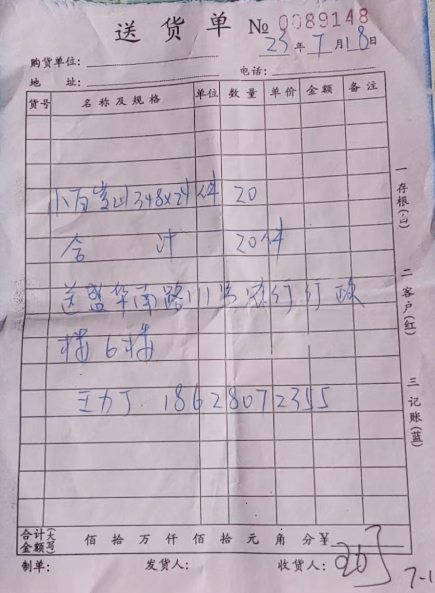 送货单 № 0089148
23年7月18日
购货单位:
地 址: 电话:
货号 名称及规格 单位 数量 单价 金额 备注
小百岁山348×24 件 20
合 计 20件
送盛华南路111号
楼6楼
王力丁. 18628072355
合计金额(大写) 佰 拾 万 仟 佰 拾 元 角 分 ¥
制单: 发货人: 收货人:
7-1
一存根(白)
二客户(红)
三记账(蓝)